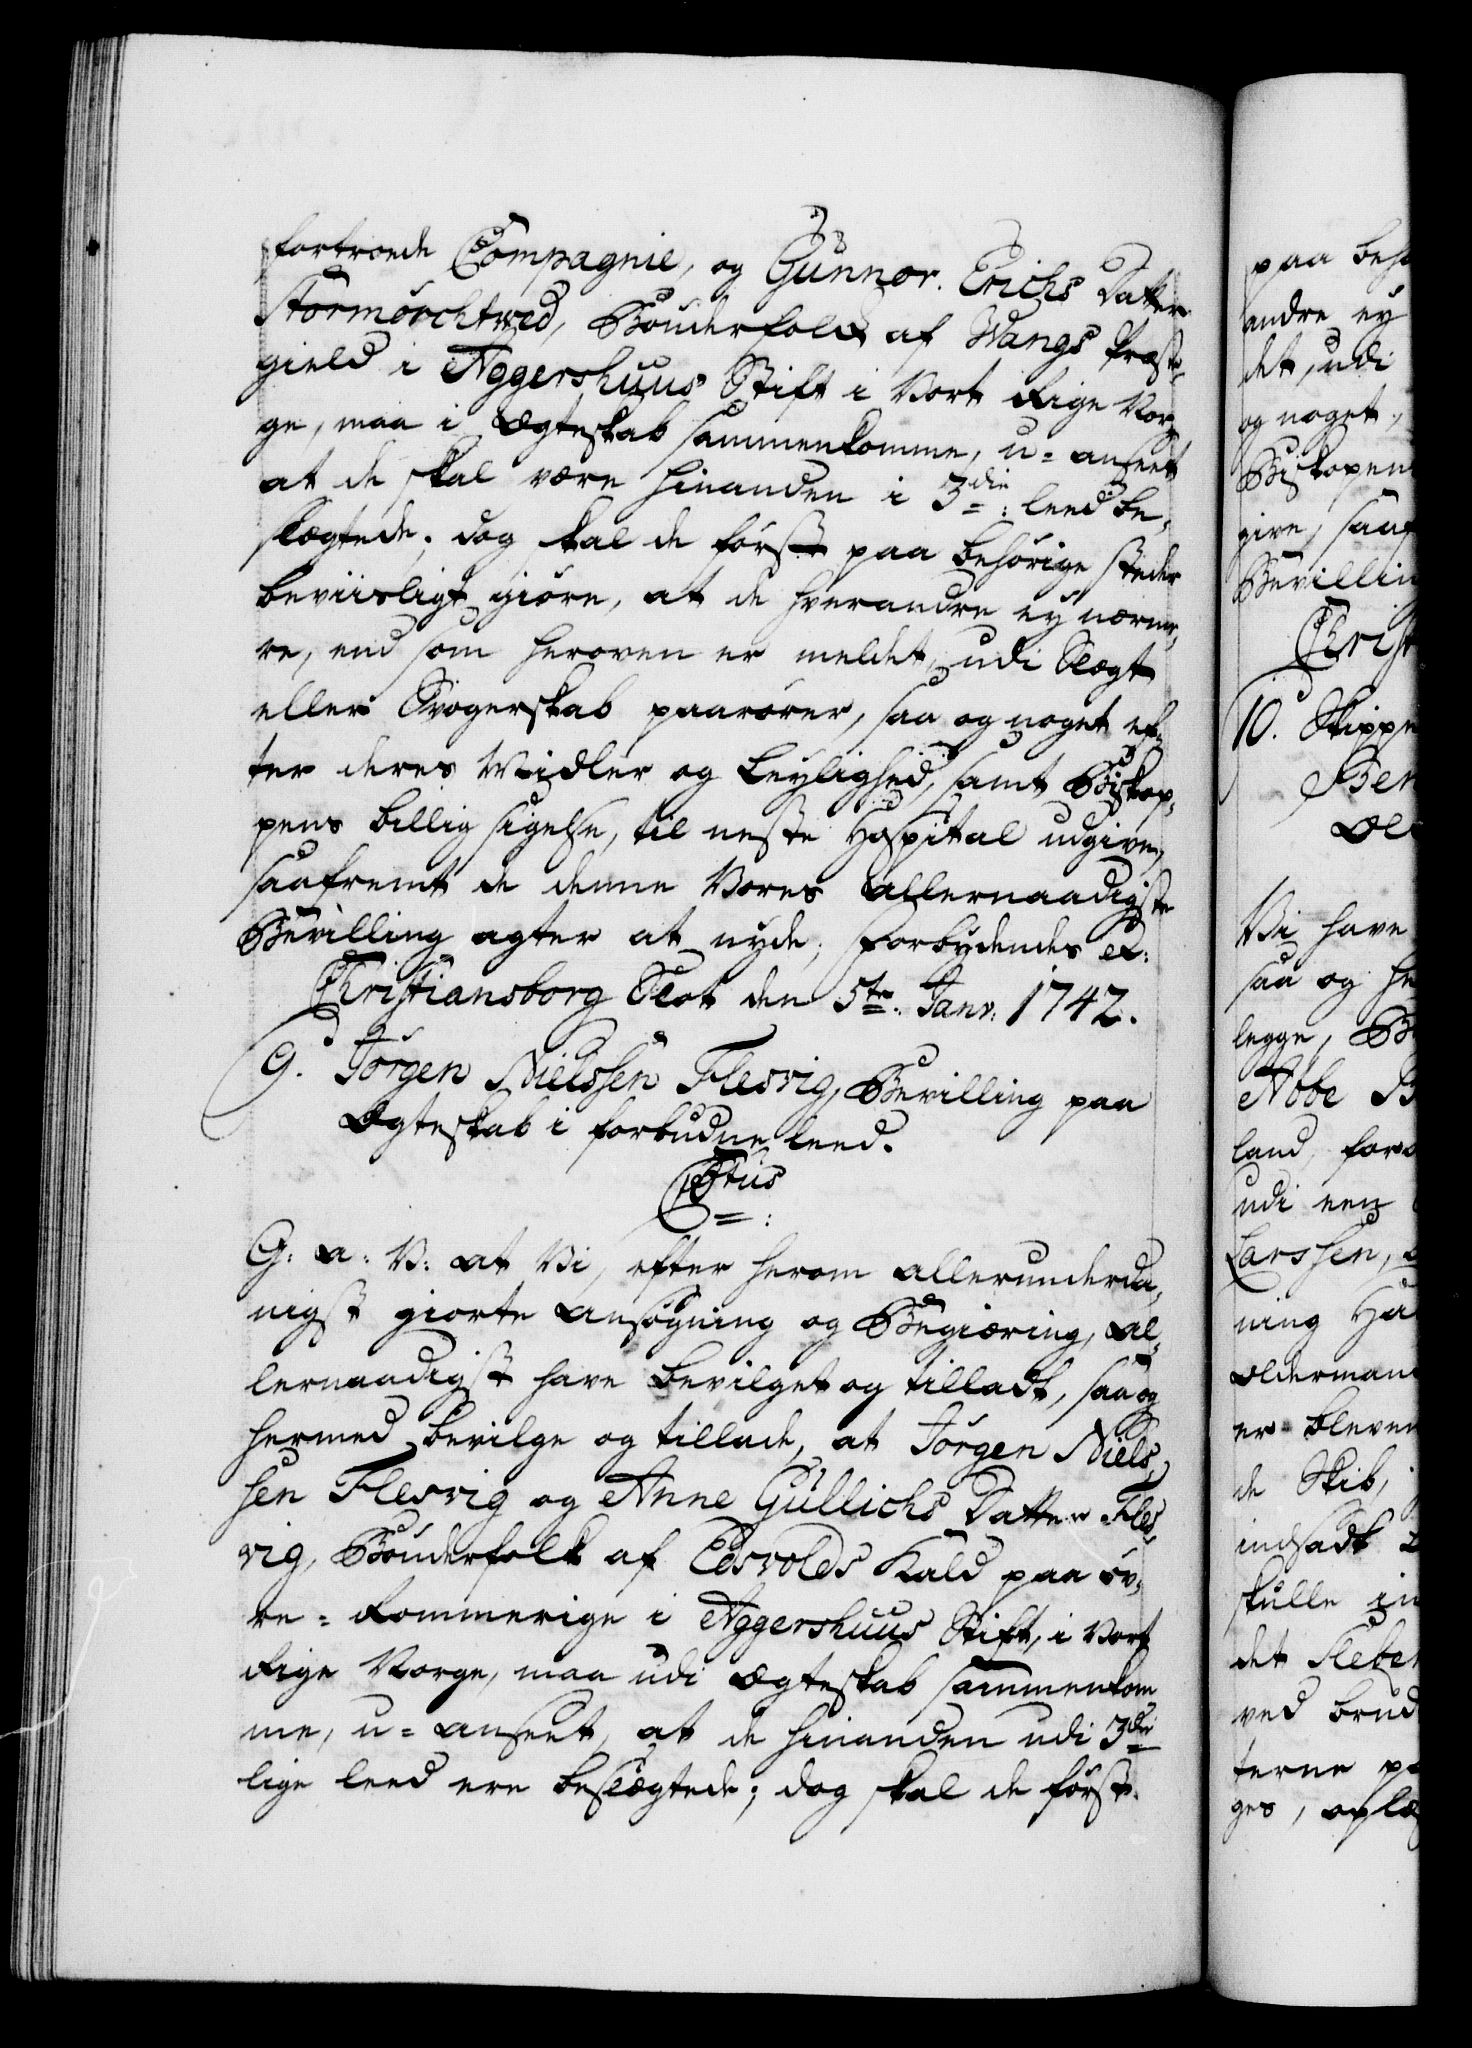 fortroede Compagnie, og Gunnor. Erichs Datter
Stormörchtwed, Bönderfolk af Wangs Præste,
gield i Aggershuus Stift i Vort Rige Nor,
ge, maa i Ægteskab sammenkomme, u-anseet
at de skal være hinanden i 3die: leed be,
slægtede; dog skal de först paa behörige stæder
beviisligt giöre, at de hverandre ey nærme,
re, end som heroven er meldet, udi Slægt
eller Svogerskab paarörer, saa og noget ef,
ter deres Midler og Leylighed, samt Biskop,
pens billig sigelse, til neste Hospital udgive,
saafremt de denne Vores allernaadigste
Bevilling agter at nyde; Forbydendes etc:
Christiansborg Slot den 5te: Janv: 1742.
9. Jörgen Nielssen Flesvig, Bevilling paa
Ægteskab i forbudne leed.
C5tus
G: A: V: At Vi, efter herom allerunderda,
nigst giorte Ansögning og Begiæring, Al,
lernaadigst have bevilget og tilladt, saa og
hermed bevilge og tillade, at Jörgen Niels,
sen Flesvig og Anne Gullichs Datter Fles,
vig, Bönderfolk af Edsvolds Kald paa öv,
re-Rommerige i Aggershuus Stift, i Vort
Rige Norge, maa udi Ægteskab sammenkom
me, u-anseet, at de hinanden udi 3die
lige leed ere beslægtede; dog skal de först
paa beh
andre ey
det, udi
og noget,
Biskopen
give, saaf
Bevillin
Christ
10. Skippe
Ber
Vi have
saa og he
legge, B
Aabe B
land, for
udi een
Larssen,
ning Ha
Oldermand
er bleven
de Skib,
indsadt
skulle in
det Fleber
ved brud
terne pa
ges, oplæ